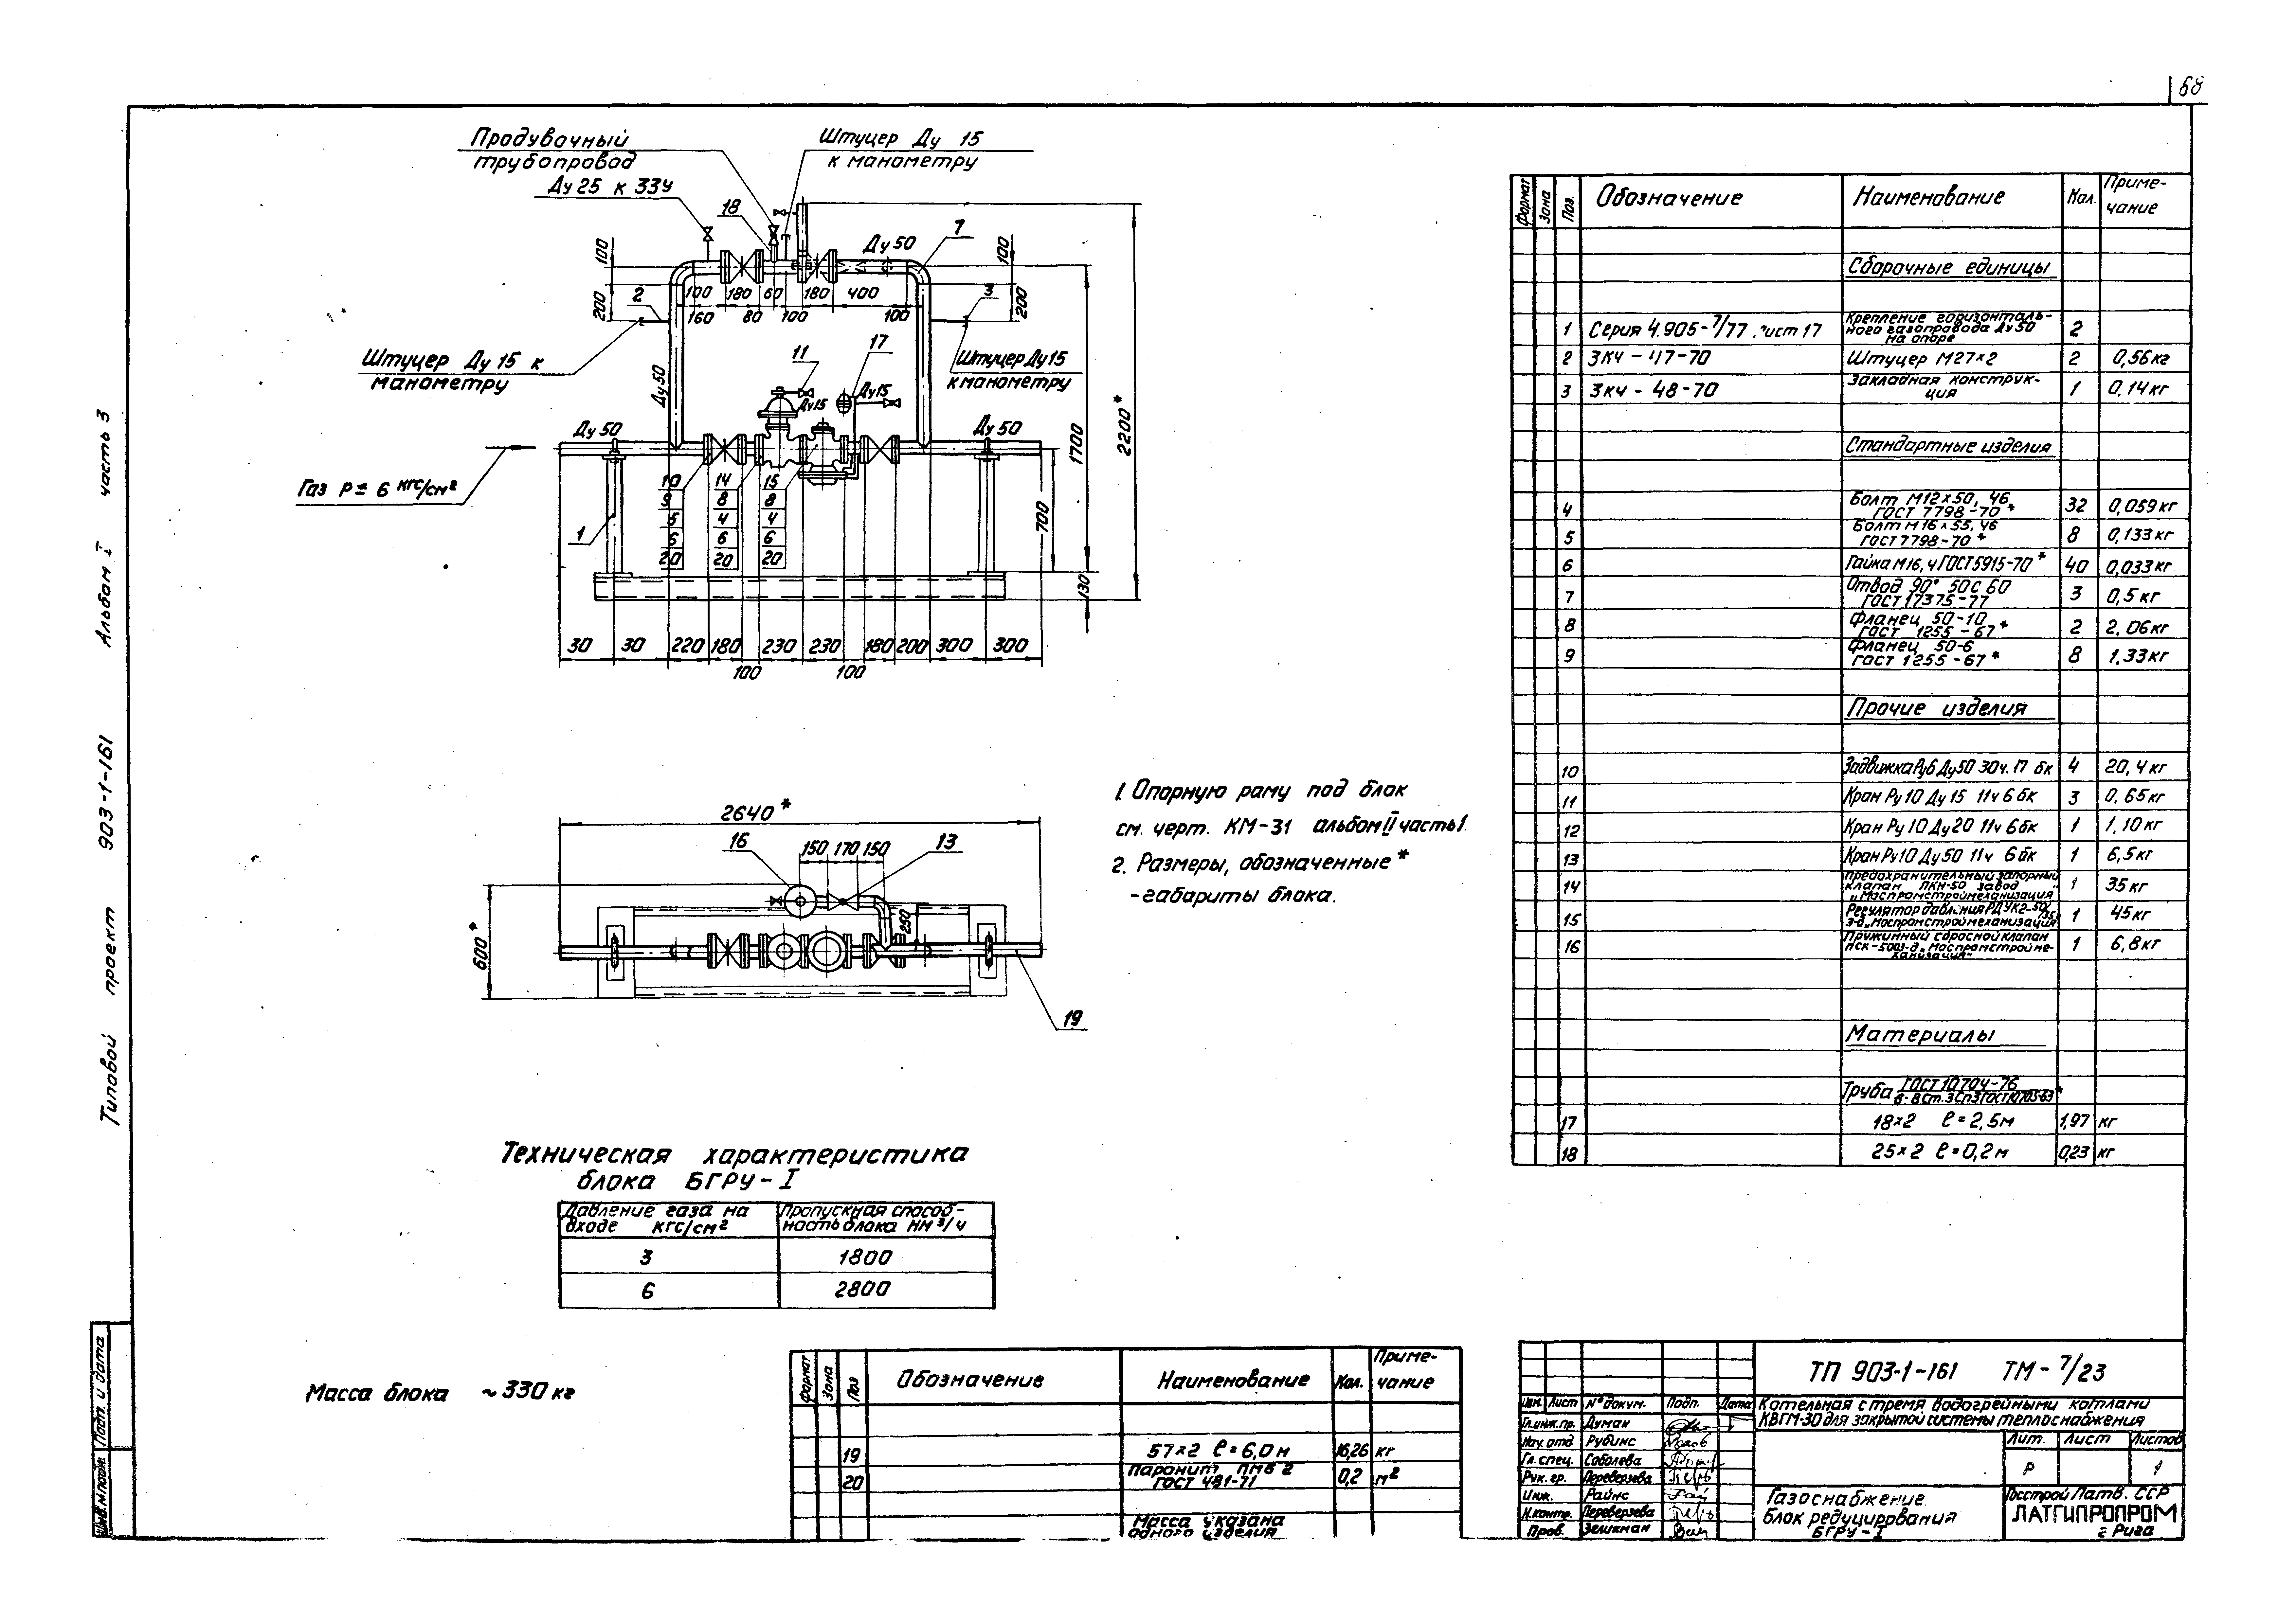 68
Продувочный
трубопровод
Штуцер Ду 15
к манометру
Ду 25 к ЗЗУ
18
7
Ду 50
100
200
2
100 180 60 180 400
160 80 100 100
3
100
200
Штуцер Ду 15 к
манометру
Штуцер Ду 15
к манометру
11
17
Ду 50
Ду15
Ду15
Ду 50
Ду 50
Газ Р= 6 кгс/см²
1
10 14 15
9 8 8
5 4 4
6 6 6
20 20 20
700
1700
2200*
130
30 30 220 180 230 230 180 200 300 300
100 100
2640*
16
150 170 150
13
250
600*
19
1. Опорную раму под блок
см. черт. КМ-31 альбом II часть 1.
2. Размеры, обозначенные *
-габариты блока.
Техническая характеристика
блока БГРУ-I
Давление газа на входе кгс/см² Пропускная способность блока нм³/ч
3 1800
6 2800
Масса блока ~330 кг
Формат Зона Поз. Обозначение Наименование Кол. Примечание
Сборочные единицы
1 Серия 4.905-7/77 лист 17 Крепление горизонтального газопровода Ду 50 на опоре 2
2 ЗКЧ-47-70 Штуцер М27×2 2 0,56кг
3 ЗКЧ-48-70 Закладная конструкция 1 0,14кг
Стандартные изделия
4 Болт М12×50, 46 ГОСТ 7798-70* 32 0,059кг
5 Болт М16×55, 46 ГОСТ 7798-70* 8 0,133кг
6 Гайка М16, 4 ГОСТ 5915-70* 40 0,033кг
7 Отвод 90° 50С 60 ГОСТ 17375-77 3 0,5кг
8 Фланец 50-10 ГОСТ 1255-67* 2 2,06кг
9 Фланец 50-6 ГОСТ 1255-67* 8 1,33кг
Прочие изделия
10 Задвижка Ру6 Ду50 30ч.17 бк 4 20,4кг
11 Кран Ру 10 Ду 15 11ч 6 бк 3 0,65кг
12 Кран Ру 10 Ду 20 11ч 6 бк 1 1,10кг
13 Кран Ру10 Ду 50 11ч 6 бк 1 6,5кг
14 Предохранительный запорный клапан ПКН-50 завод "Моспромстроймеханизация" 1 35кг
15 Регулятор давления РДУК2-50/35 з-д "Моспромстроймеханизация" 1 45кг
16 Пружинный сбросной клапан ПСК-50 з-д "Моспромстроймеханизация" 1 6,8кг
Материалы
Труба ГОСТ 10704-76
ГОСТ 10705-63*
17 18×2 ℓ=2,5м 1,97 кг
18 25×2 ℓ=0,2м 0,23 кг
Формат Зона Поз Обозначение Наименование Кол. Примечание
19 57×2 ℓ=6,0м 16,26 кг
20 Паронит ПМБ 2 ГОСТ 481-71 0,2 м²
Масса указана
одного изделия
ТП 903-1-161 ТМ-7/23
Изм. Лист № докум. Подп. Дата
Гл.инж.пр. Думан
Нач. отд. Рубинс
Гл. спец. Соболева
Рук. гр. Переверзева
Инж. Райнс
Н.контр. Переверзева
Пров. Зеликман
Котельная с тремя водогрейными котлами
КВГМ-30 для закрытой системы теплоснабжения
Лит. Лист Листов
Р 1
Газоснабжение.
Блок редуцирования
БГРУ-I
Госстрой Латв. ССР
ЛАТГИПРОПРОМ
г. Рига
Типовой проект 903-1-161 Альбом I часть 3
Инв.№ подл. Подп. и дата